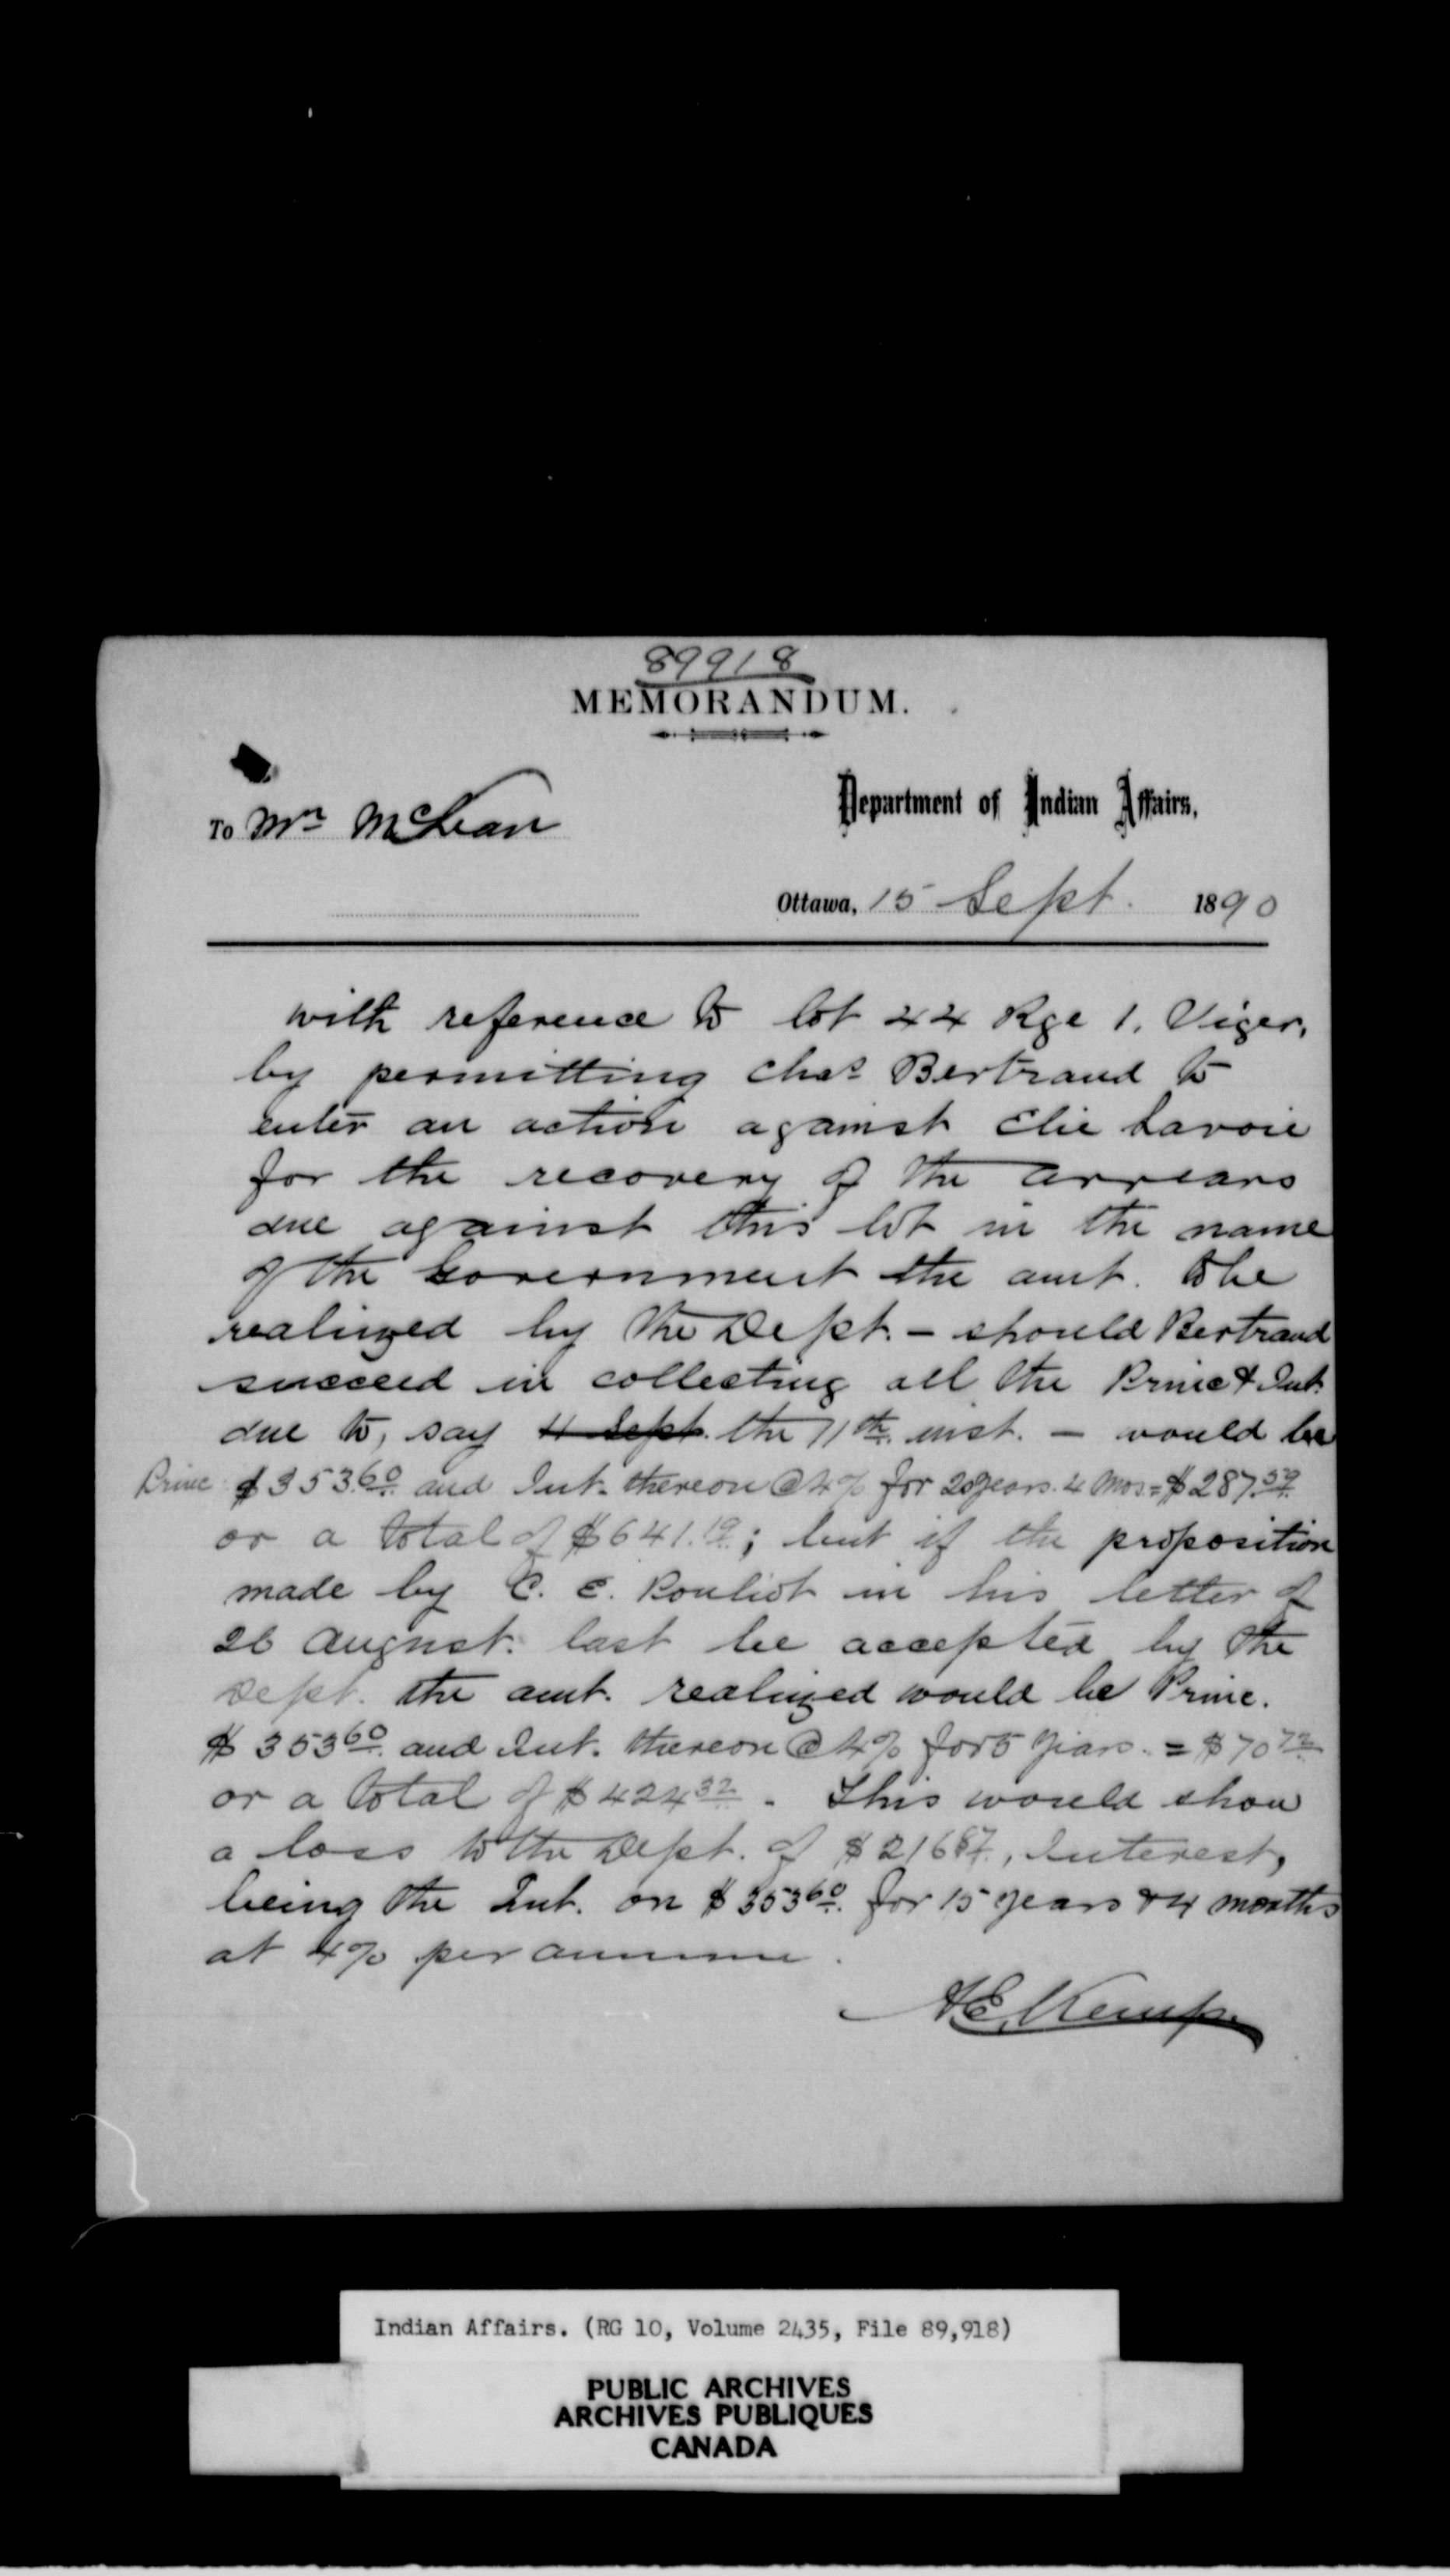 89918
MEMORANDUM.
To Mr McLean
Department of Indian Affairs,
Ottawa, 15 Sept. 1890
with reference to lot 44 Rge 1. Viger,
by permitting Chas Bertrand to
enter an action against Elie Lavoie
for the recovery of the arrears
due against this lot in the name
of the Government the amt. to be
realized by the Dept. - should Bertrand
succeed in collecting all the Princ & Int.
due to, say 11 Sept. the 11th inst. - would be
Princ $353.60 and Int. thereon @ 4% for 20 years. 4 mos = $287.59
or a total of $641.19; but if the proposition
made by C. E. Pouliot in his letter of
26 August last be accepted by the
Dept. the amt. realized would be Princ.
$353.60 and Int. thereon @ 4% for 5 years. = $70.72
or a total of $424.32. This would show
a loss to the Dept. of $216.87, Interest,
being the Int. on $353.60 for 15 years & 4 months
at 4% per annum.
A.E. Kemp.
Indian Affairs. (RG 10, Volume 2435, File 89,918)
PUBLIC ARCHIVES
ARCHIVES PUBLIQUES
CANADA